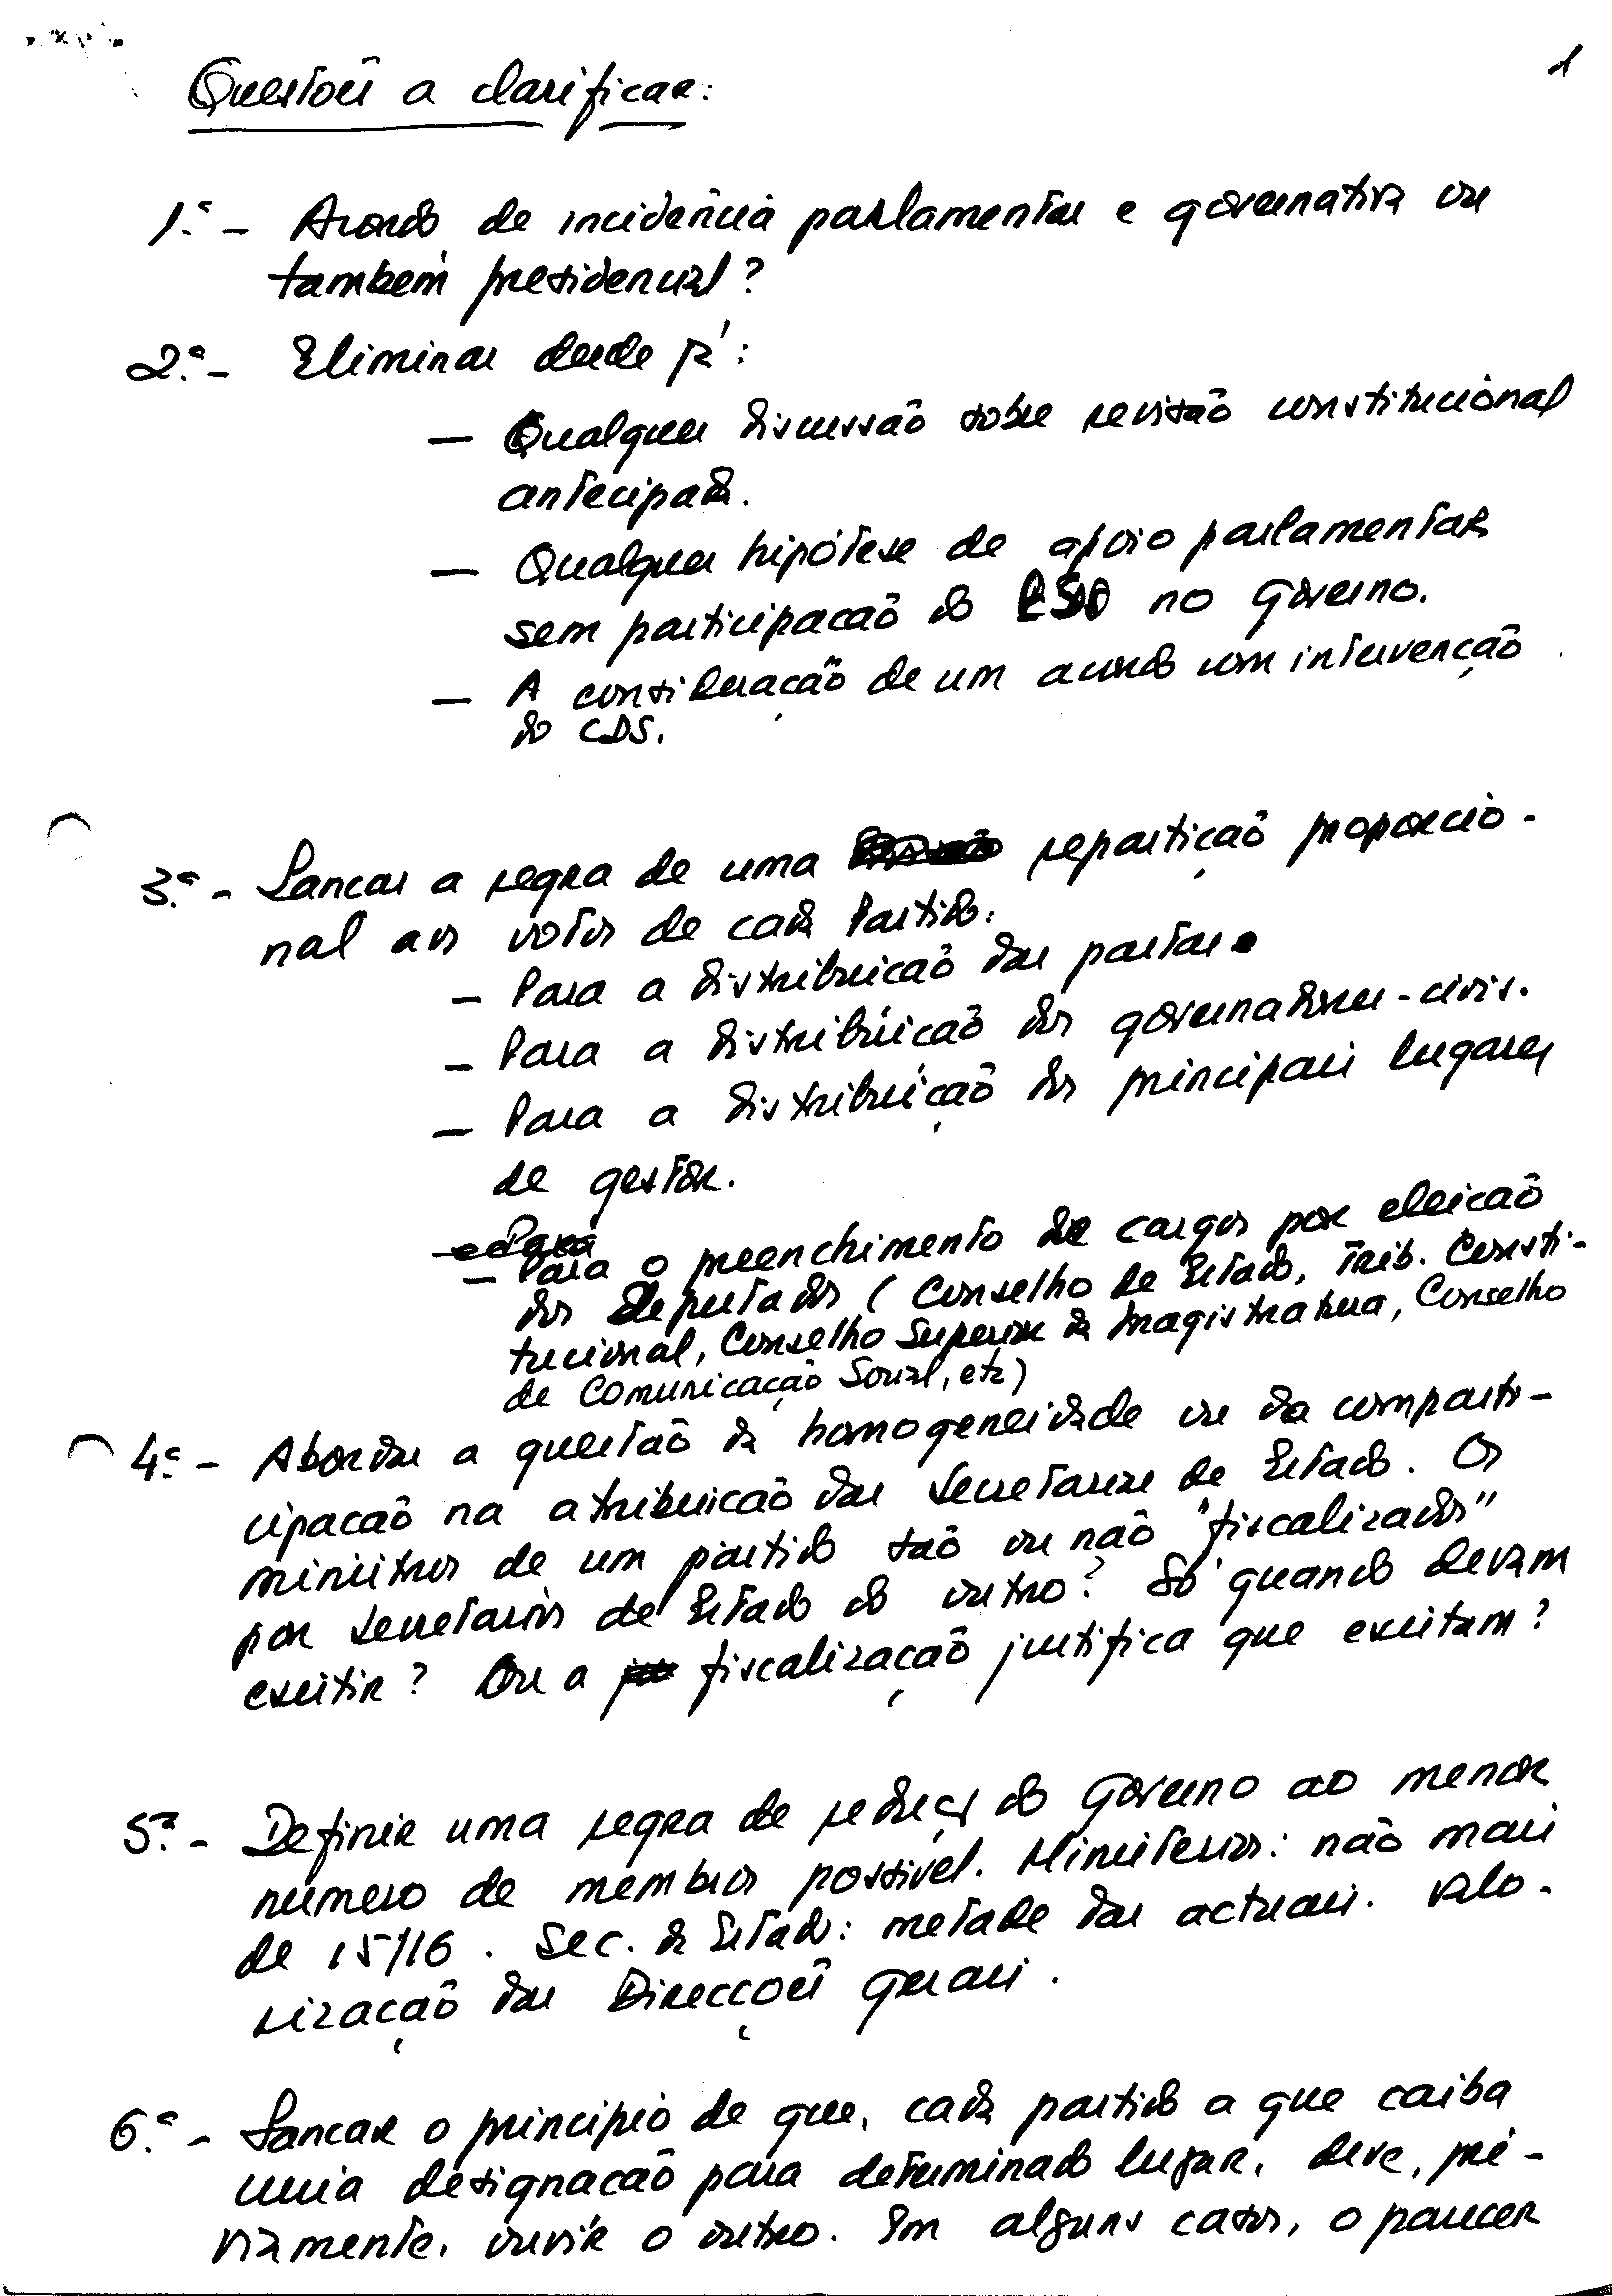 1
Questões a clarificar:
1.ª - Acordo de incidência parlamentar e governativa ou
também presidencial?
2.ª - Eliminar desde já:
— Qualquer discussão sobre revisão constitucional
antecipada.
— Qualquer hipótese de apoio parlamentar
sem participação do PSD no Governo.
— A consideração de um acordo com intervenção
do CDS.
3.ª - Lançar a regra de uma repartição proporcio-
nal aos votos de cada Partido:
- Para a distribuição das pastas.
- Para a distribuição dos governadores-civis.
- Para a distribuição dos principais lugares
de gestor.
- Para o preenchimento de cargos por eleição
dos Deputados (Conselho de Estado, Trib. Consti-
tucional, Conselho Superior da Magistratura, Conselho
de Comunicação Social, etc)
4.ª - Abordar a questão da homogeneidade ou da comparti-
cipação na atribuição das Secretarias de Estado. Os
ministros de um partido são ou não "fiscalizados"
por Secretários de Estado do outro? Só quando devam
existir? Ou a fiscalização justifica que existam?
5.ª - Definir uma regra de redução do Governo ao menor
número de membros possível. Ministérios: não mais
de 15/16. Sec. de Estado: metade das actuais. Valo-
rização das Direcções Gerais.
6.ª - Lançar o princípio de que, cada partido a que caiba
uma designação para determinado lugar, deve, pré-
viamente, ouvir o outro. Em alguns casos, o parecer